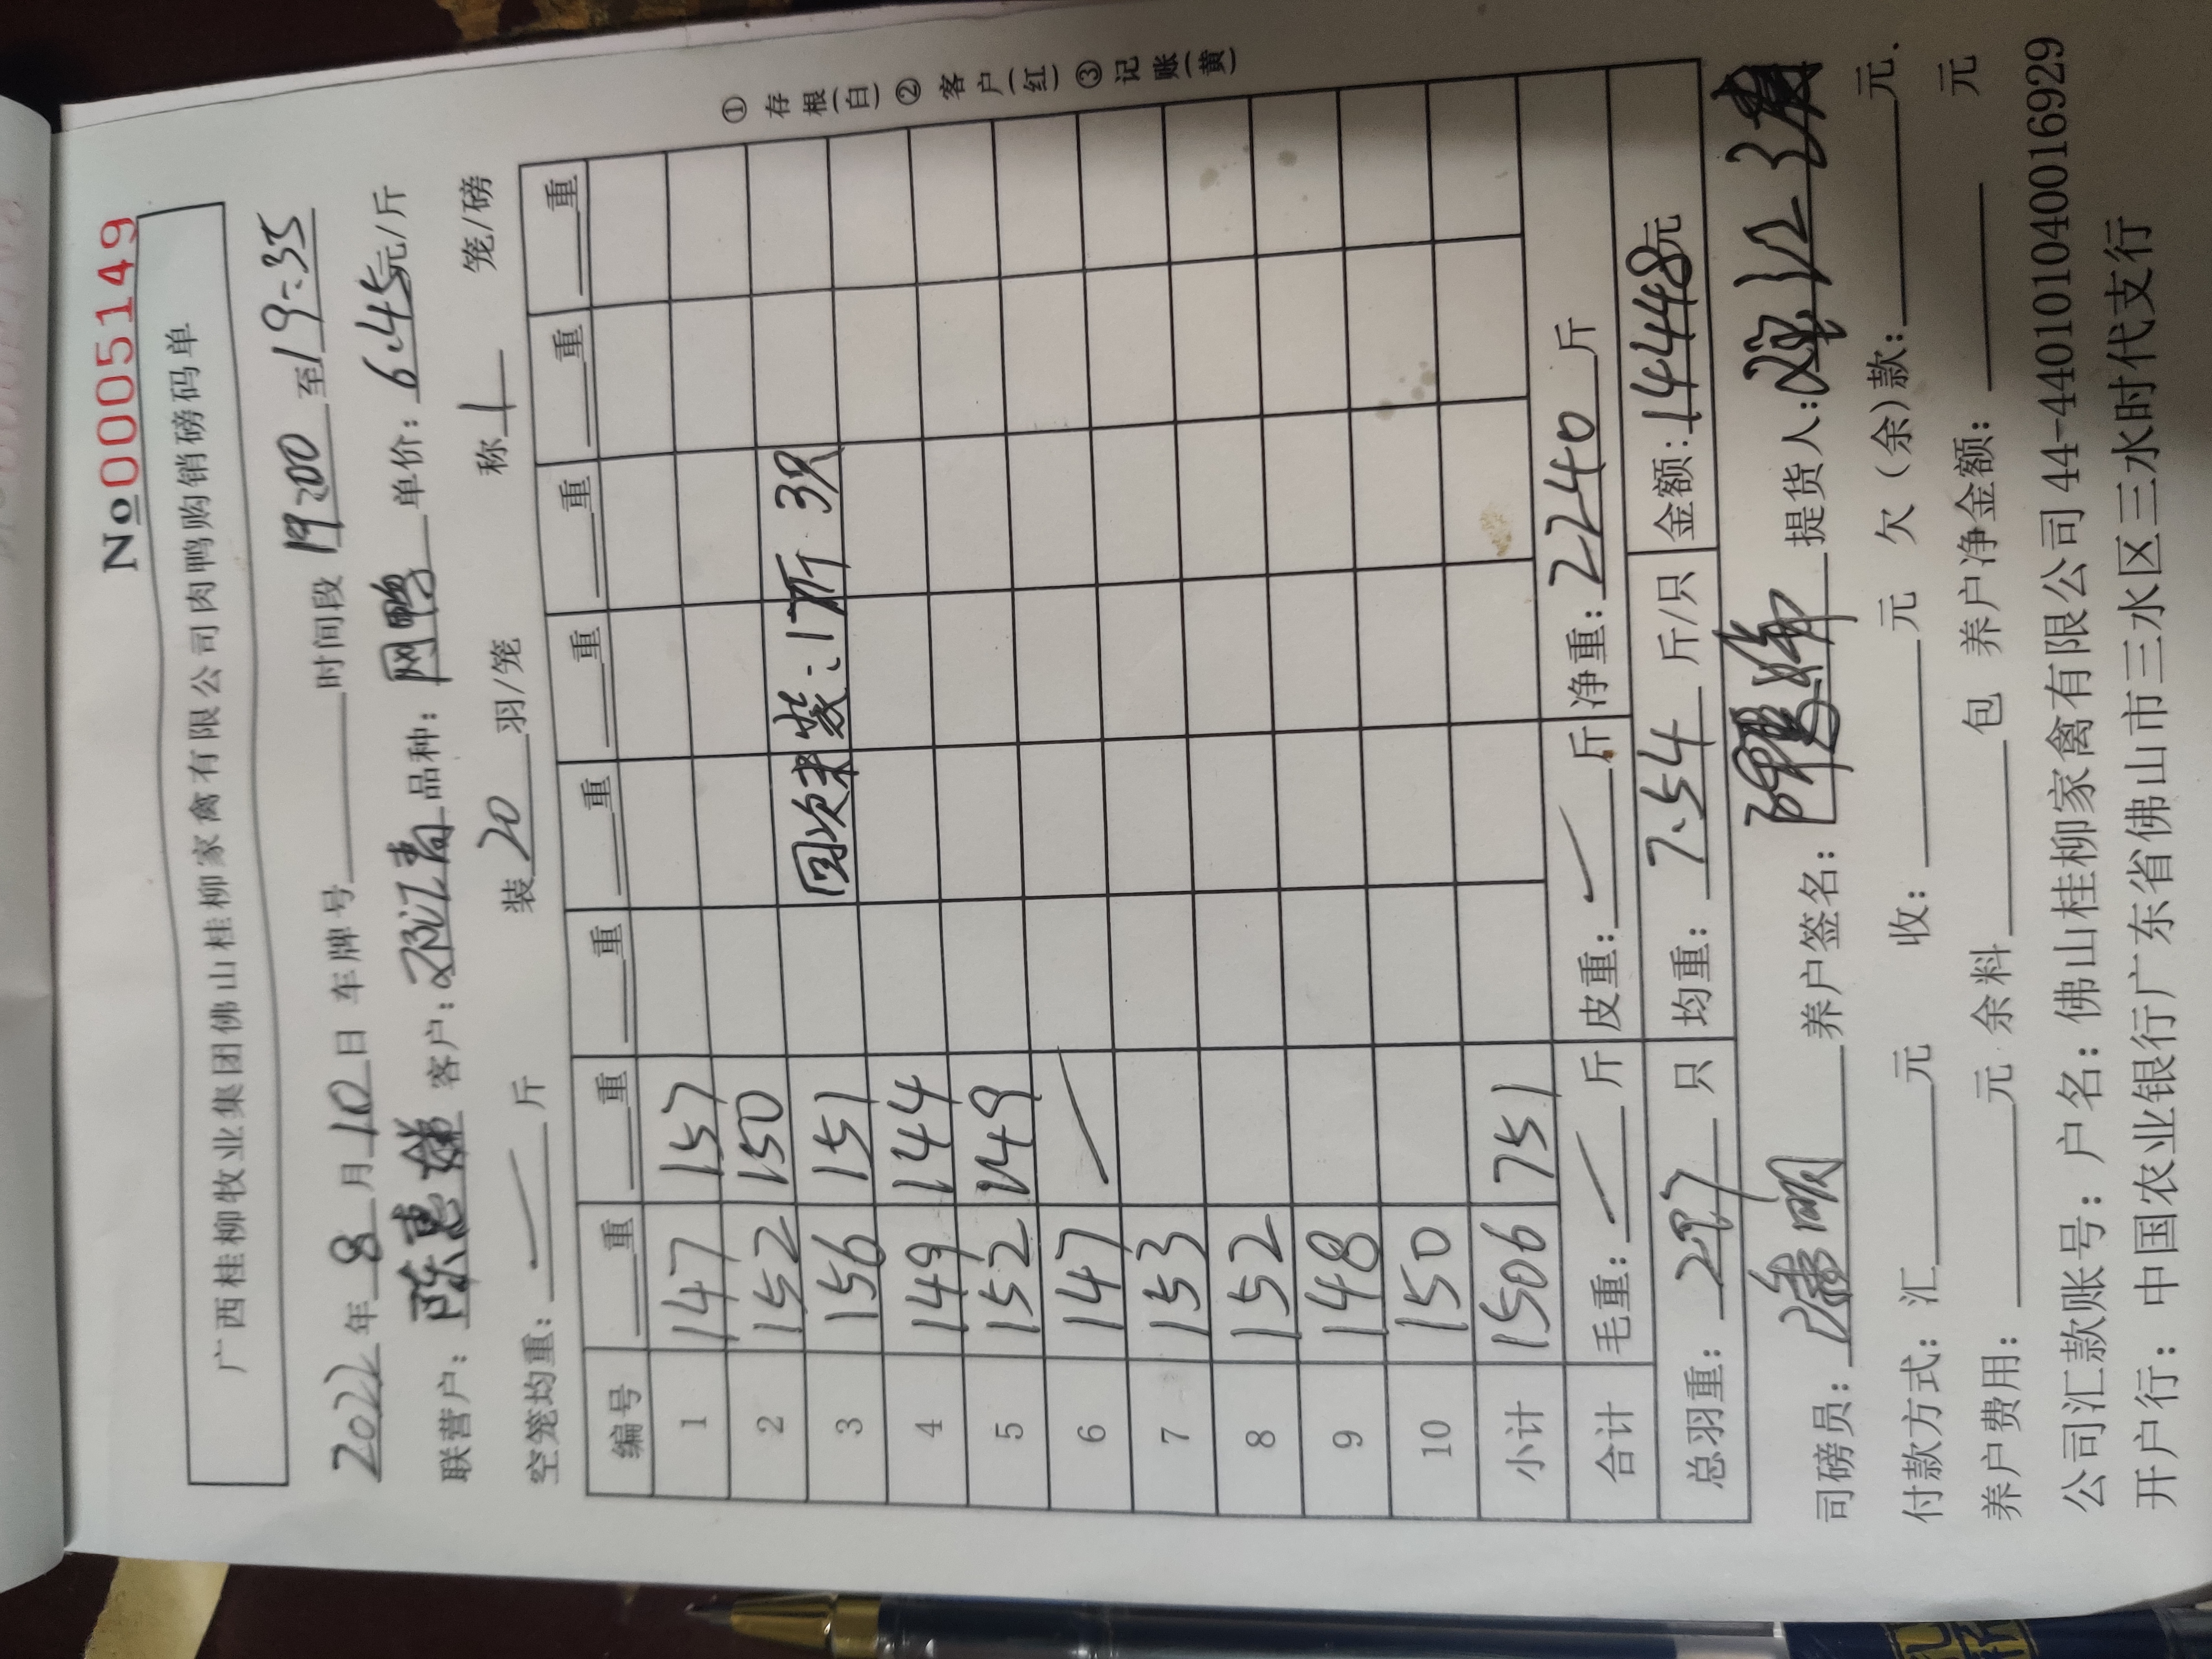 №0005149
广西桂柳牧业集团佛山桂柳家禽有限公司肉鸭购销磅码单
2022年8月10日 车牌号 时间段 19:00 至19:35
联营户: 陈惠嫌 客户: 邓江青 品种: 网鸭 单价: 6.45元/斤
空笼均重: 斤 装 20 羽/笼 称 1 笼/磅
编号 重 重 重 重 重 重 重 重
1 147 157
2 152 150
3 156 151 回次未装:17斤 3只
4 149 144
5 152 149
6 147
7 153
8 152
9 148
10 150
小计 1506 751
合计 毛重: 斤 皮重: 斤 净重: 2240 斤
总羽重: 297 只 均重: 7.54 斤/只 金额: 14448元
司磅员: 养户签名: 提货人:
付款方式: 汇 元 收: 元 欠(余)款: 元.
养户费用: 元 余料 包 养户净金额: 元
公司汇款账号: 户名: 佛山桂柳家禽有限公司 44-440101040016929
开户行: 中国农业银行广东省佛山市三水区三水时代支行
① 存根(白) ② 客户(红) ③ 记账(黄)